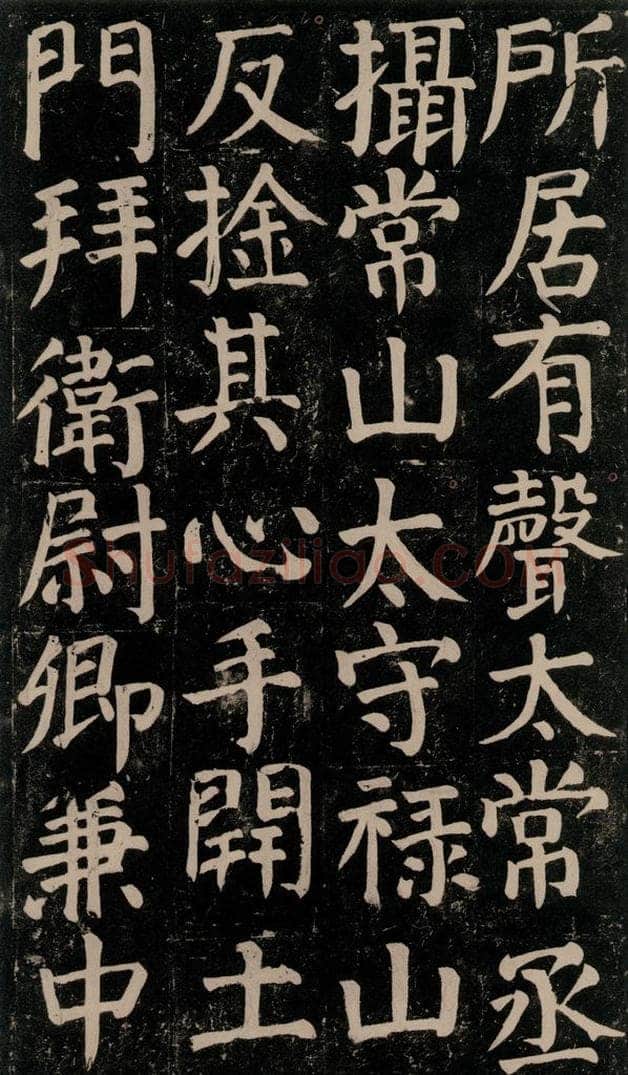 所居有聲太常丞
攝常山太守禄山
反捦其心手開土
門拜衛尉卿兼中
Shufaziliao.COM